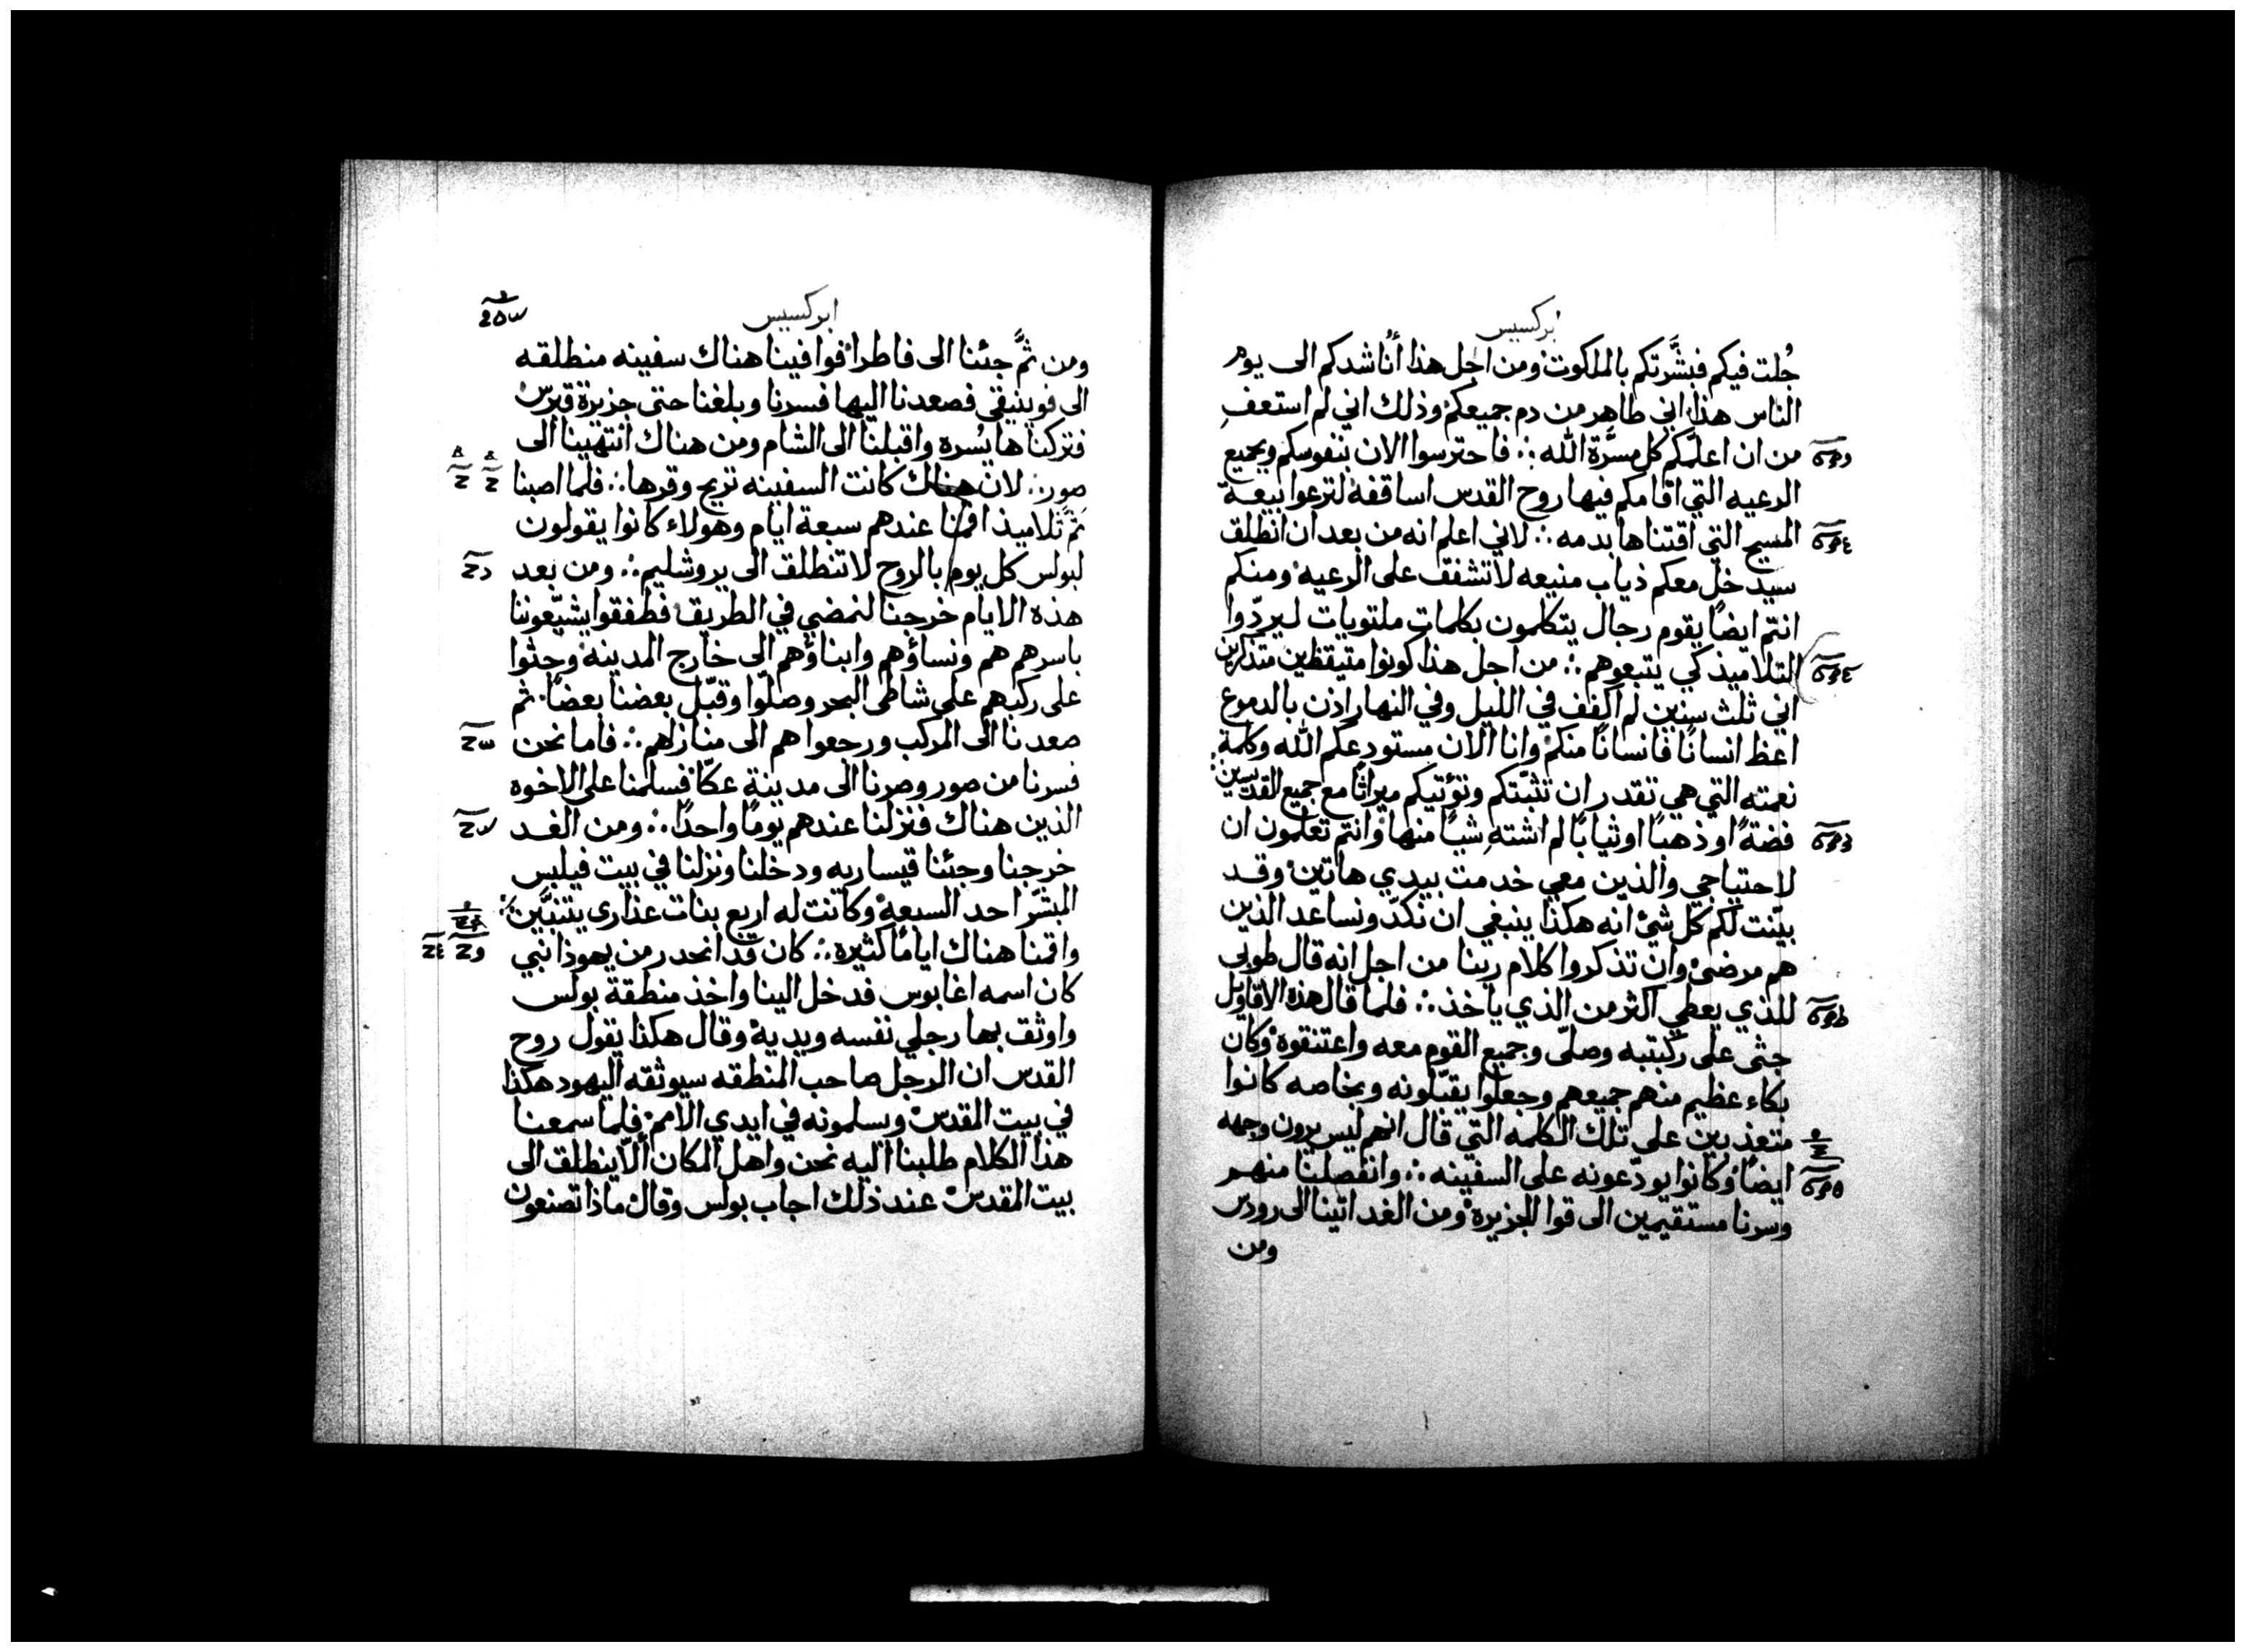 ابركسيس
جُلت فيكم فبشَّرتكم بالملكوت ومن اجل هذا أناشدكم الى يوم
الناس هذا اني طاهر من دم جميعكم وذلك اني لم استعفِ
من ان اعلّمكم كل مسرَّة الله ∴ فاحترسوا الان بنفوسكم وبجميع
الرعيه التي اقامكم فيها روح القدس اساقفة لترعوا بيعة
المسيح التي اقتناها بدمه ∴ لاني اعلم انه من بعد ان انطلق
سيدخل معكم ذياب منيعه لا تشفق على الرعيه ومنكم
انتم ايضًا يقوم رجال يتكلمون بكلمات ملتويات ليردّوا
التلاميذ كي يتبعوهم ∴ من اجل هذا كونوا متيقظين متذكرين
اني ثلث سنين لم اكفف في الليل وفي النهار اذن بالدموع
اعظ انسانًا فانسانًا منكم وانا الان مستودعكم الله وكلمة
نعمته التي هي تقدر ان تثبّتكم وتؤتيكم ميراثًا مع جميع القديسين
فضةً او ذهبًا او ثيابًا لم اشتهِ شيًا منها وانتم تعلمون ان
لاحتياجي والذين معي خدمت بيدي هاتين وقد
بيّنت لكم كل شئ انه هكذا ينبغي ان نكدّ ونساعد الذين
هم مرضئ وان تذكروا كلام ربنا من اجل انه قال طوبى
للذي يعطي اكثر من الذي ياخذ ∴ فلما قال هذه الاقاويل
جثى على ركبتيه وصلّى وجميع القوم معه واعتنقوه وكان
بكاء عظيم منهم جميعهم وجعلوا يقبّلونه وبخاصه كانوا
متعذبين على تلك الكلمه التي قال انهم ليس يرون وجهه
ايضًا وكانوا يودّعونه على السفينه ∴ وانفصلنا منهم
وسرنا مستقيمين الى قوا الجزيره ومن الغد اتينا الى رودس
ومن
ابركسيس
ومن ثمَّ جئنا الى فاطرا فوافينا هناك سفينه منطلقه
الى فوينيقي فصعدنا اليها فسرنا وبلغنا حتى جزيرة قبرس
فتركناها يسره واقبلنا الى الشام ومن هناك انتهينا الى
صور ∴ لان هناك كانت السفينه تريح وقرها ∴ فلما اصبنا
ثمَّ تلاميذ اقمنا عندهم سبعة ايام وهولاء كانوا يقولون
لبولس كل يوم بالروح لا تنطلق الى يروشليم ∴ ومن بعد
هذه الايام خرجنا لنمضي في الطريق فطفقوا يشيّعوننا
باسرهم هم ونساؤهم وابناؤهم الى خارج المدينه وجثوا
على ركبهم على شاطى البحر وصلّوا وقبّل بعضنا بعضًا ثم
صعدنا الى المركب ورجعوا هم الى منازلهم ∴ فاما نحن
فسرنا من صور وصرنا الى مدينة عكّا فسلمنا على الاخوه
الذين هناك فنزلنا عندهم يومًا واحدًا ∴ ومن الغد
خرجنا وجئنا قيساريه ودخلنا ونزلنا في بيت فيلبس
المبشّر احد السبعه وكانت له اربع بنات عذارى يتنبّين
واقمنا هناك ايامًا كثيره ∴ كان قد انحدر من يهوذا نبي
كان اسمه اغابوس فدخل الينا واخذ منطقة بولس
واوثق بها رجلي نفسه ويديه وقال هكذا يقول روح
القدس ان الرجل صاحب المنطقه سيوثقه اليهود هكذا
في بيت المقدس ويسلمونه في ايدي الامم فلما سمعنا
هذا الكلام طلبنا اليه نحن واهل المكان ألّا ينطلق الى
بيت المقدس عند ذلك اجاب بولس وقال ماذا تصنعون